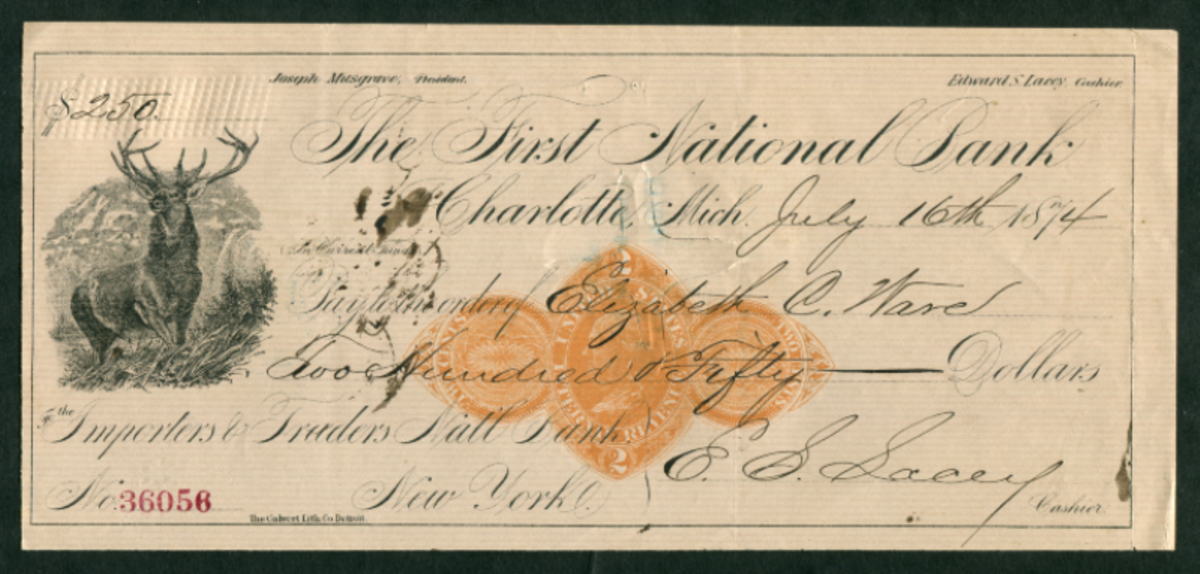 Joseph Musgrave, President. Edward S. Lacey, Cashier
$250.
The First National Bank
Charlotte, Mich. July 16th 1874
In Current Funds
Pay to the order of Elizabeth C. Ware
Two Hundred & Fifty Dollars
To the Importers & Traders Natl. Bank
E. S. Lacey
No. 36056 New York Cashier.
The Calvert Lith. Co. Detroit.
2
UNITED STATES
INTERNAL REVENUE
2